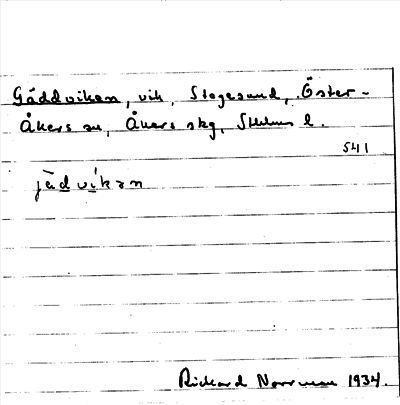 Gäddviken, vik, Stegesund, Öster-
Åkers sn, Åkers skg, Sthlms l.
541
jädvíkan
Rickard Norrman 1934.